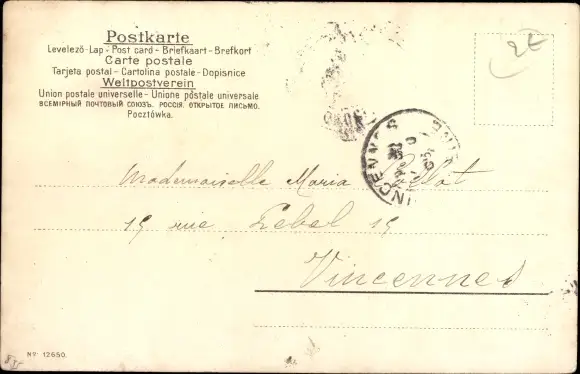 Postkarte
Levelező-Lap - Post card - Briefkaart - Brefkort
Carte postale
Tarjeta postal - Cartolina postale - Dopisnice
Weltpostverein
Union postale universelle - Unione postale universale
ВСЕМІРНЫЙ ПОЧТОВЫЙ СОЮЗЪ. РОССІЯ. ОТКРЫТОЕ ПИСЬМО.
Pocztówka.
2E
VINCENNES
Mademoiselle Maria
19 rue Lebel 19
Vincennes
No. 12650.